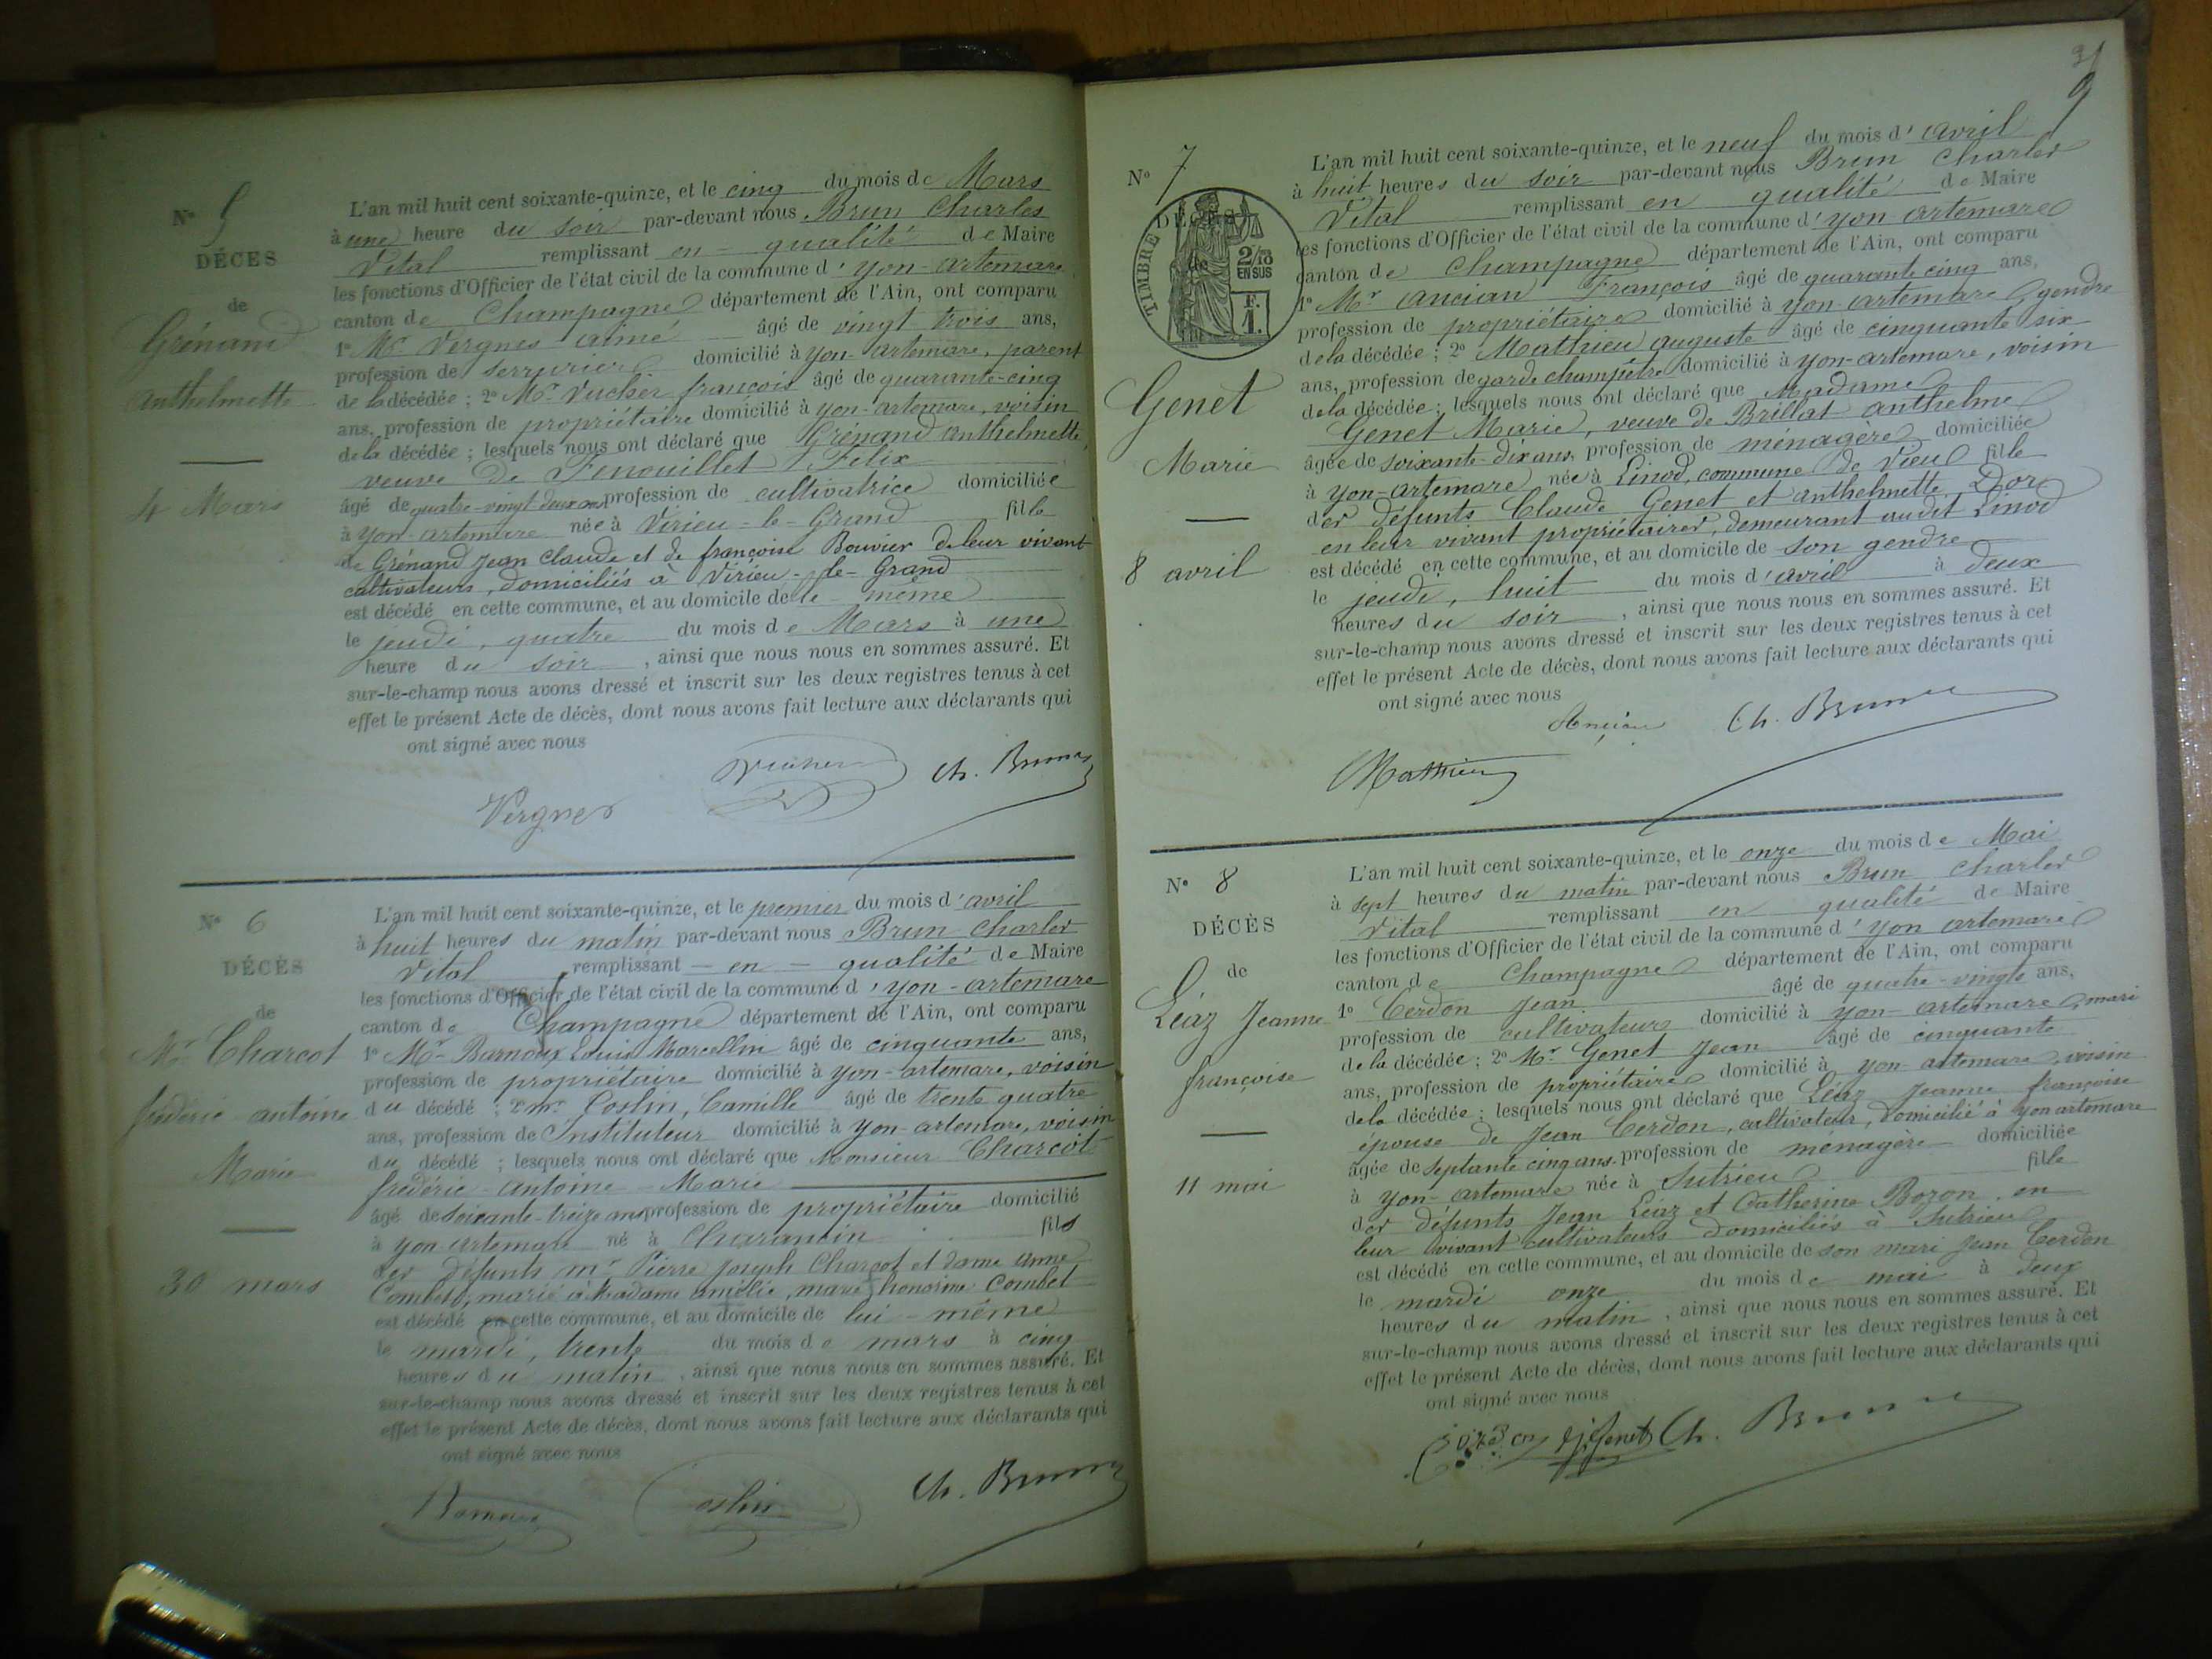 N° 5
DÉCES
de
Grénand
anthelmette
4 Mars
L'an mil huit cent soixante-quinze, et le cinq du mois de Mars
à une heure du soir par-devant nous Brun Charles
Vital remplissant en - qualité de Maire
les fonctions d'Officier de l'état civil de la commune d'yon-artemare
canton de Champagne département de l'Ain, ont comparu
1° Mr Vergnes aimé âgé de vingt trois ans,
profession de serrurier domicilié à yon-artemare, parent
de la décédée ; 2° Mr Vucher françois âgé de quarante-cinq
ans, profession de propriétaire domicilié à yon-artemare, voisin
de la décédée ; lesquels nous ont déclaré que Grénand anthelmette,
veuve de Fenouillet Félix
âgé de quatre-vingt deux ans profession de cultivatrice domiciliée
à yon artemare née à Virieu-le-Grand fille
de Grénand Jean Claude et de françoise Bouvier de leur vivant
cultivateurs, domiciliés à Virieu-le-Grand
est décédé en cette commune, et au domicile de le même
le jeudi, quatre du mois de Mars à une
heure du soir, ainsi que nous nous en sommes assuré. Et
sur-le-champ nous avons dressé et inscrit sur les deux registres tenus à cet
effet le présent Acte de décès, dont nous avons fait lecture aux déclarants qui
ont signé avec nous
Vucher Ch. Brun
Vergnes
N° 6
DÉCÈS
de
Mr Charcot
frédéric antoine
Marie
30 mars
L'an mil huit cent soixante-quinze, et le premier du mois d'avril
à huit heures du matin par-devant nous Brun Charles
Vital remplissant - en - qualité de Maire
les fonctions d'Officier de l'état civil de la commune d'yon-artemare
canton de Champagne département de l'Ain, ont comparu
1° Mr Barnoux Louis Marcellin âgé de cinquante ans,
profession de propriétaire domicilié à yon-artemare, voisin
du décédé ; 2° mr Coslin, Camille âgé de trente quatre
ans, profession de Instituteur domicilié à yon-artemare, voisin
du décédé ; lesquels nous ont déclaré que Monsieur Charcot
frédéric-antoine-Marie
âgé de soixante-treize ans profession de propriétaire domicilié
à yon artemare né à Charancin fils
des défunts mr Pierre joseph Charcot et dame anne
Combet, marié à Madame amélie, marie honorine Combet
est décédé en cette commune, et au domicile de lui-même
le mardi, trente du mois de mars à cinq
heures du matin, ainsi que nous nous en sommes assuré. Et
sur-le-champ nous avons dressé et inscrit sur les deux registres tenus à cet
effet le présent Acte de décès, dont nous avons fait lecture aux déclarants qui
ont signé avec nous
Coslin Ch. Brun
9
N° 7
DÉCÈS
de
TIMBRE
2/10
EN SUS
F.
1.
Genet
Marie
8 avril
L'an mil huit cent soixante-quinze, et le neuf du mois d'avril
à huit heures du soir par-devant nous Brun Charles
Vital remplissant en qualité de Maire
les fonctions d'Officier de l'état civil de la commune d'yon artemare
canton de Champagne département de l'Ain, ont comparu
1° Mr ancian François âgé de quarante cinq ans,
profession de propriétaire domicilié à yon-artemare, gendre
de la décédée ; 2° Mathieu auguste âgé de cinquante six
ans, profession de garde champêtre domicilié à yon-artemare, voisin
de la décédée ; lesquels nous ont déclaré que Madame
Genet Marie, veuve de Brillat anthelme
âgée de soixante-dix ans, profession de ménagère domiciliée
à yon-artemare née à Linod, commune de Vieu fille
des défunts Claude Genet et anthelmette Dor
en leur vivant propriétaires, demeurant au dit Linod
est décédé en cette commune, et au domicile de son gendre
le jeudi, huit du mois d'avril à deux
heures du soir, ainsi que nous nous en sommes assuré. Et
sur-le-champ nous avons dressé et inscrit sur les deux registres tenus à cet
effet le présent Acte de décès, dont nous avons fait lecture aux déclarants qui
ont signé avec nous
Ancian Ch. Brun
Mathieu
N° 8
DÉCÈS
de
Léaz Jeanne
françoise
11 mai
L'an mil huit cent soixante-quinze, et le onze du mois de Mai
à sept heures du matin par-devant nous Brun Charles
Vital remplissant en qualité de Maire
les fonctions d'Officier de l'état civil de la commune d'yon artemare
canton de Champagne département de l'Ain, ont comparu
1° Cerdon Jean âgé de quatre-vingts ans,
profession de cultivateur domicilié à yon-artemare, mari
de la décédée ; 2° Mr Genet Jean âgé de cinquante
ans, profession de propriétaire domicilié à yon-artemare, voisin
de la décédée ; lesquels nous ont déclaré que Léaz Jeanne françoise
épouse de Jean Cerdon, cultivateur, domicilié à yon artemare
âgée de septante cinq ans profession de ménagère domiciliée
à yon-artemare née à Sutrieu fille
des défunts Jean Léaz et Catherine Bozon, en
leur vivant cultivateurs domiciliés à Sutrieu
est décédé en cette commune, et au domicile de son mari Jean Cerdon
le mardi onze du mois de mai à deux
heures du matin, ainsi que nous nous en sommes assuré. Et
sur-le-champ nous avons dressé et inscrit sur les deux registres tenus à cet
effet le présent Acte de décès, dont nous avons fait lecture aux déclarants qui
ont signé avec nous
Genet Ch. Brun